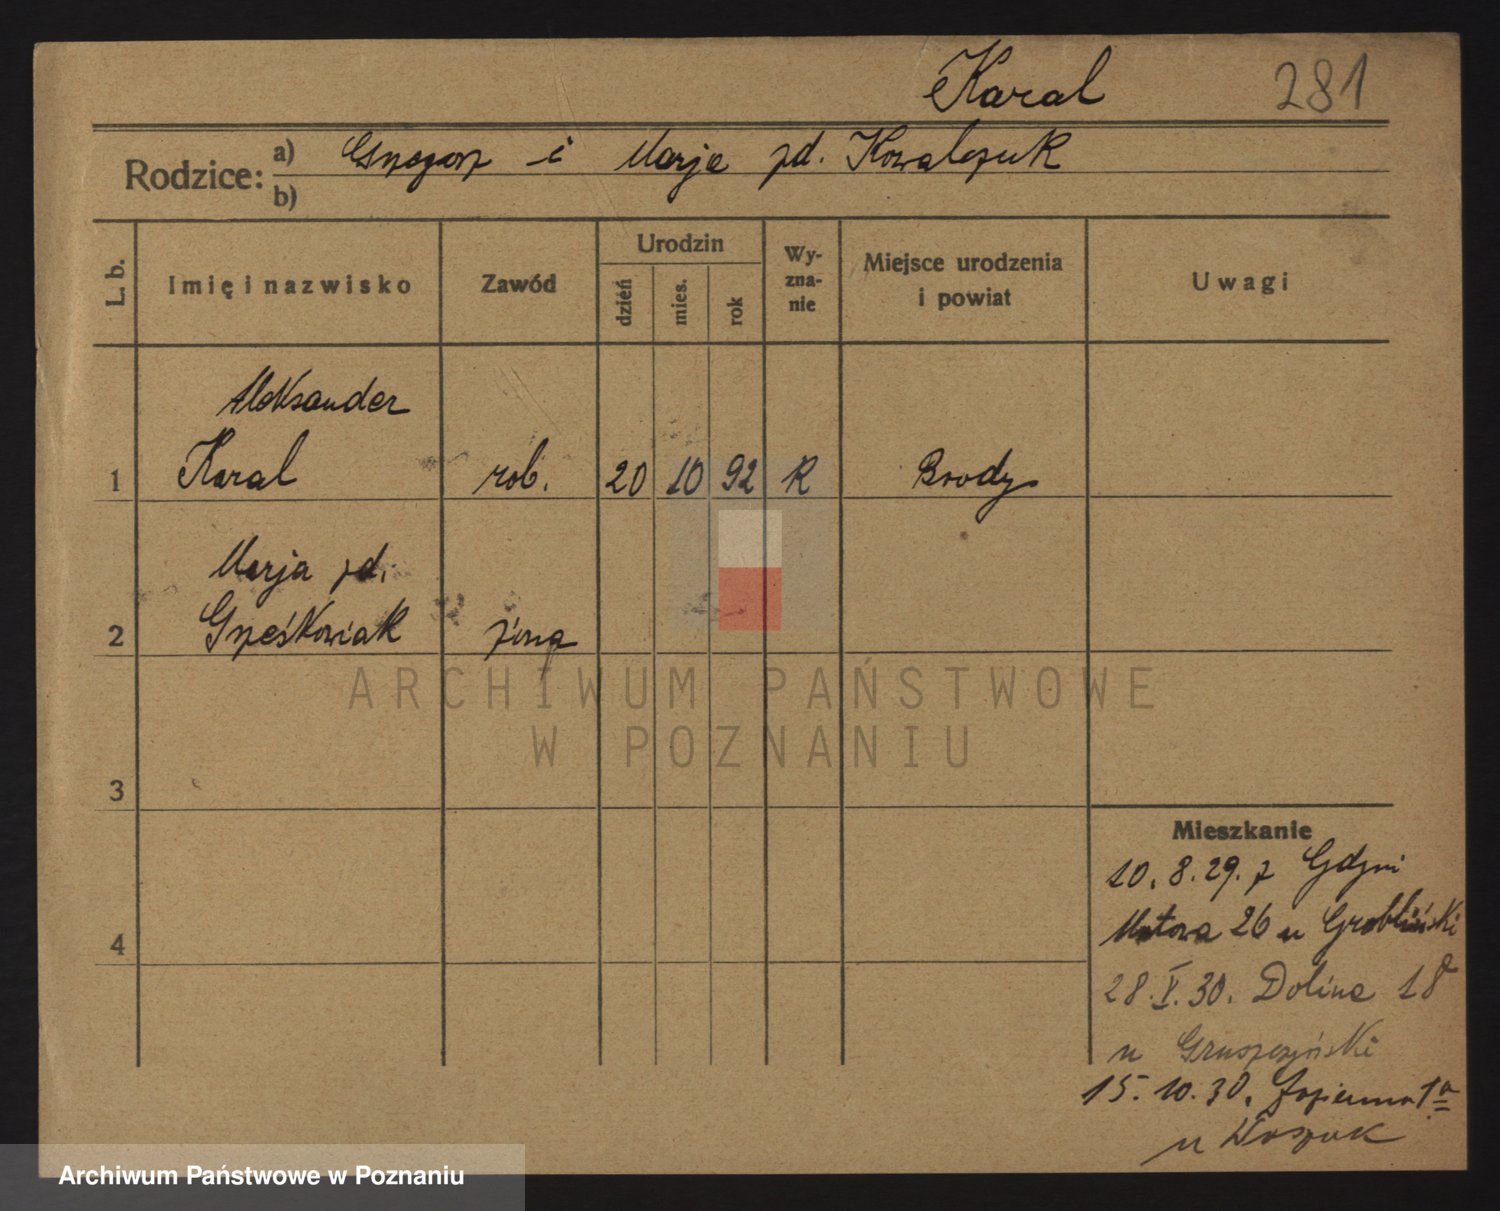 Karal 281
Rodzice: a) Grzegorz i Marja zd. Kowalczuk
b)
L. b. Imię i nazwisko Zawód Urodzin dzień mies. rok Wy-zna-nie Miejsce urodzenia i powiat Uwagi
Aleksander
1 Karal rob. 20 10 92 R Brody
Marja zd.
2 Grześkowiak żona
ARCHIWUM PAŃSTWOWE
W POZNANIU
3
Mieszkanie
10. 8. 29. z Gdyni
26 u Grobliński
4
28. V. 30. Dolina 18
u Gruszczyński
15. 10. 30. 1a
u
Archiwum Państwowe w Poznaniu